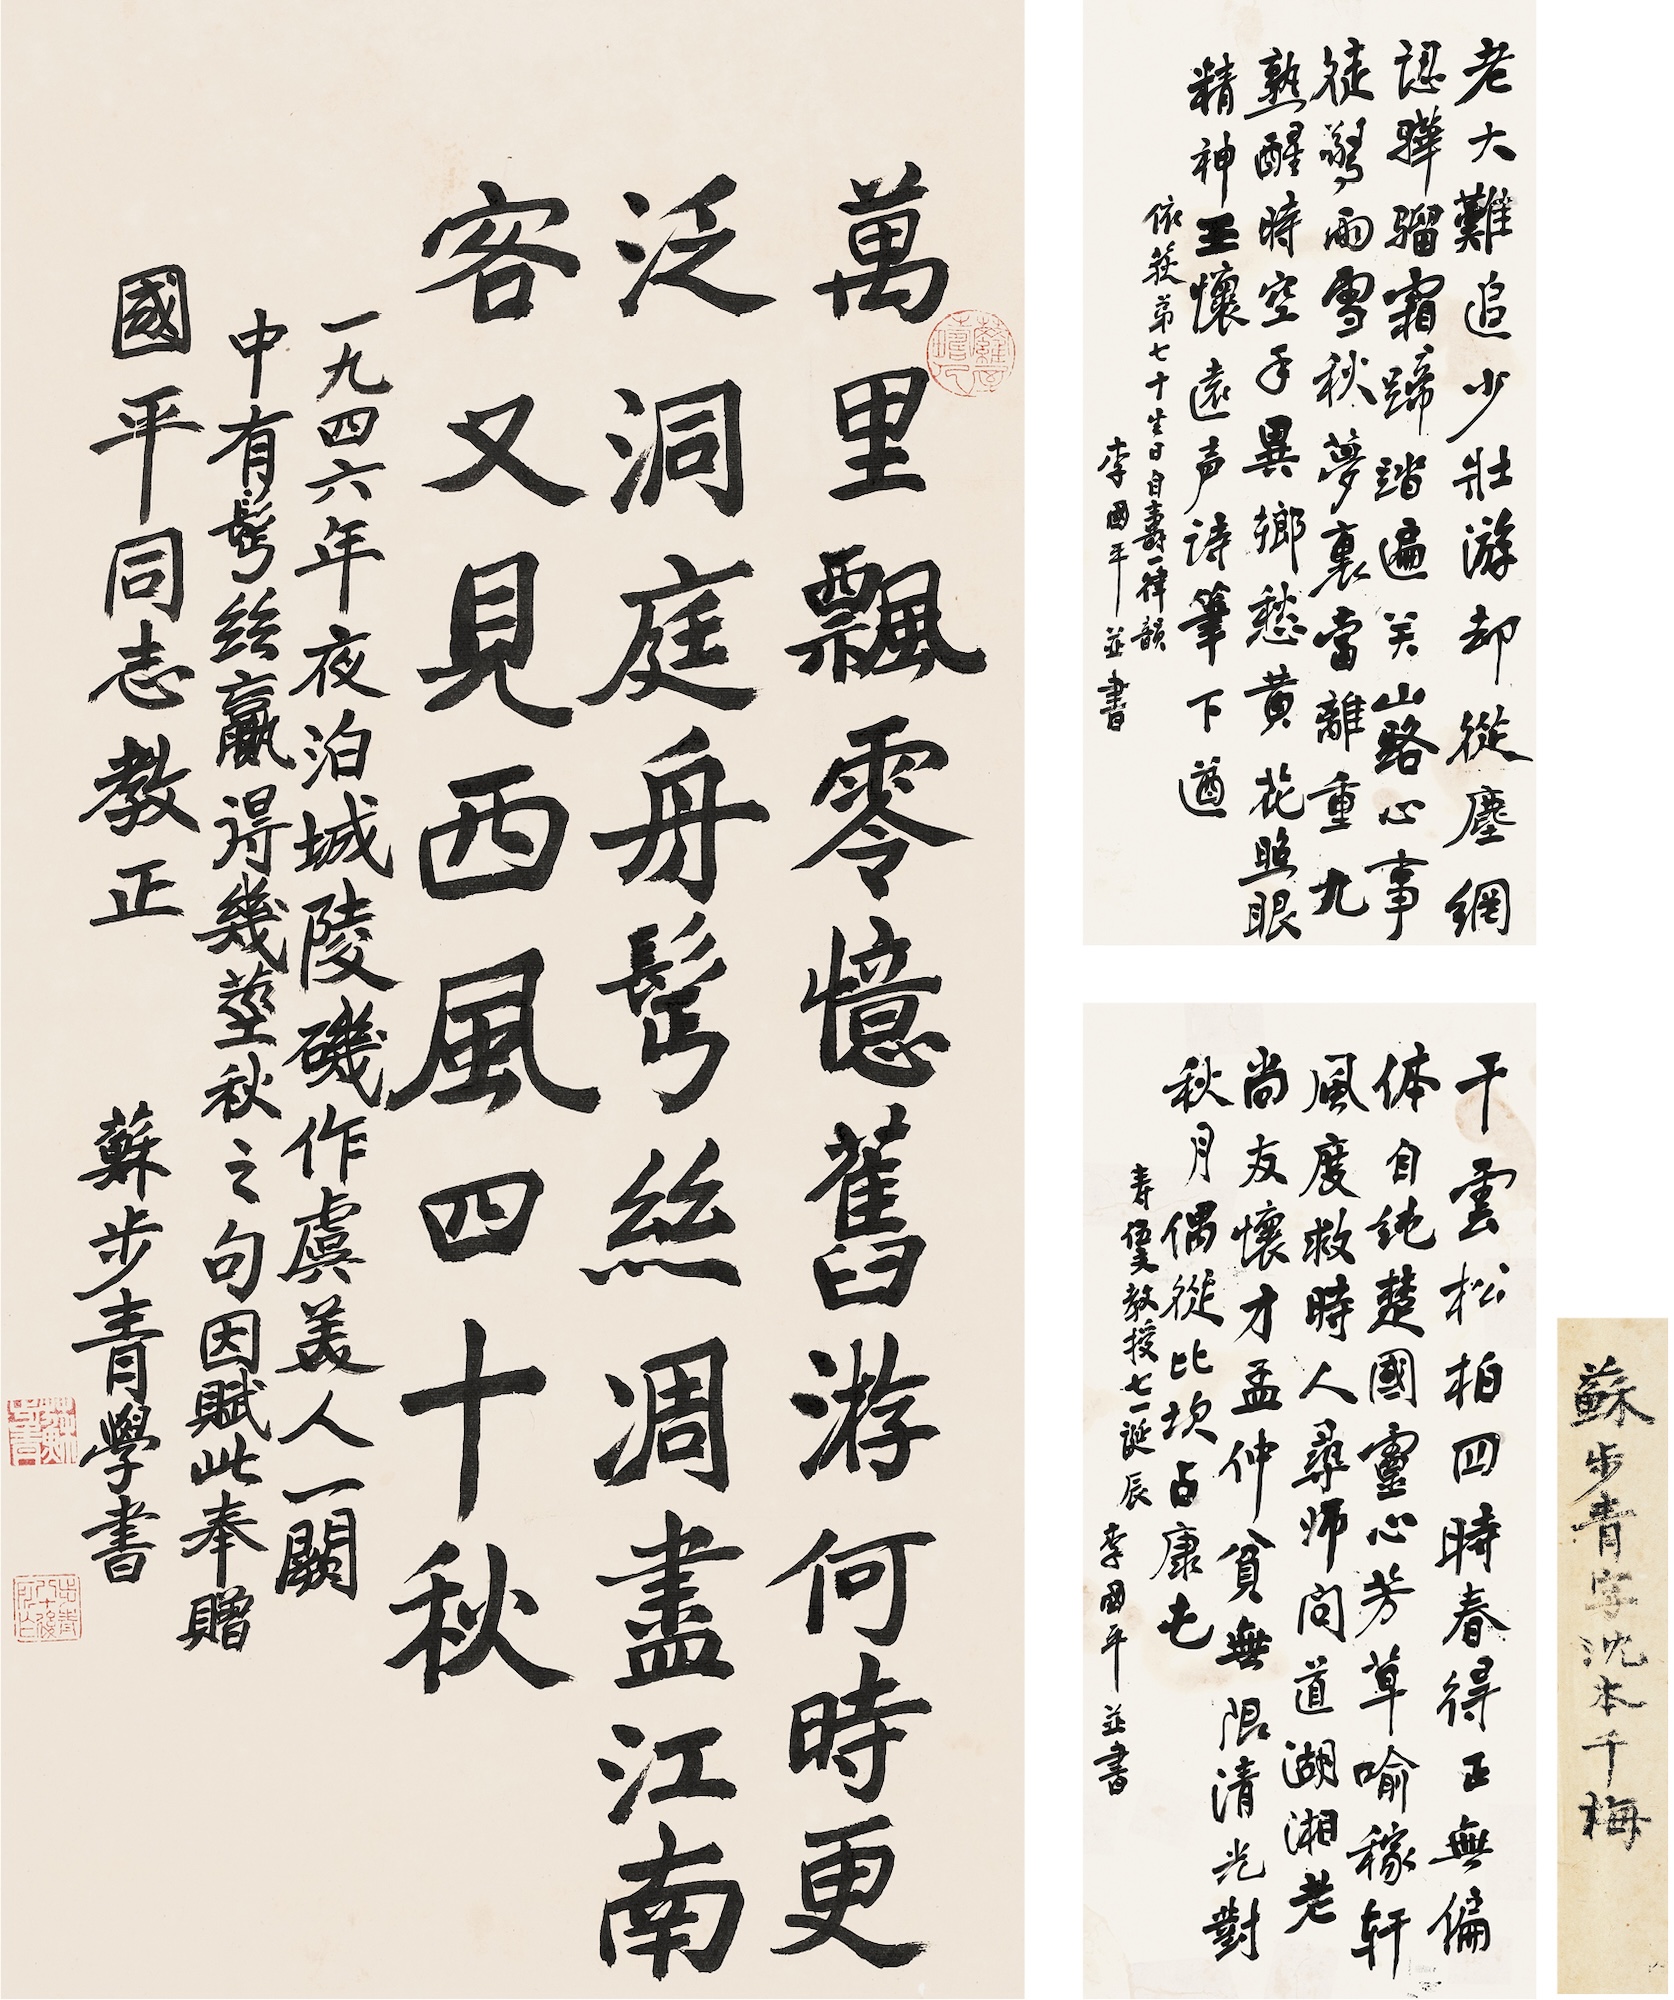 萬里飄零憶舊游何時更
泛洞庭舟鬢絲凋盡江南
客又見西風四十秋
一九四六年夜泊城陵磯作虞美人一闋
中有鬢絲贏得幾莖秋之句因賦此奉贈
國平同志教正
蘇步青學書
老大難追少壯游却從塵網
認驊騮霜蹄踏遍关山路心事
徒驚雨雪秋夢裏當離重九
熟醒時空手異鄉愁黄花照眼
精神王懷遠声詩筆下遒
依荻弟七十生日自壽一律韻
李國平並書
干雲松柏四時春得正無偏
体自純楚國靈心芳草喻稼軒
風度救時人尋师问道湖湘老
尚友懷才孟仲貧無限清光對
秋月偶從比坎占康屯
寿伍叟教授七一诞辰
李國平並書
蘇步青字沈本千梅